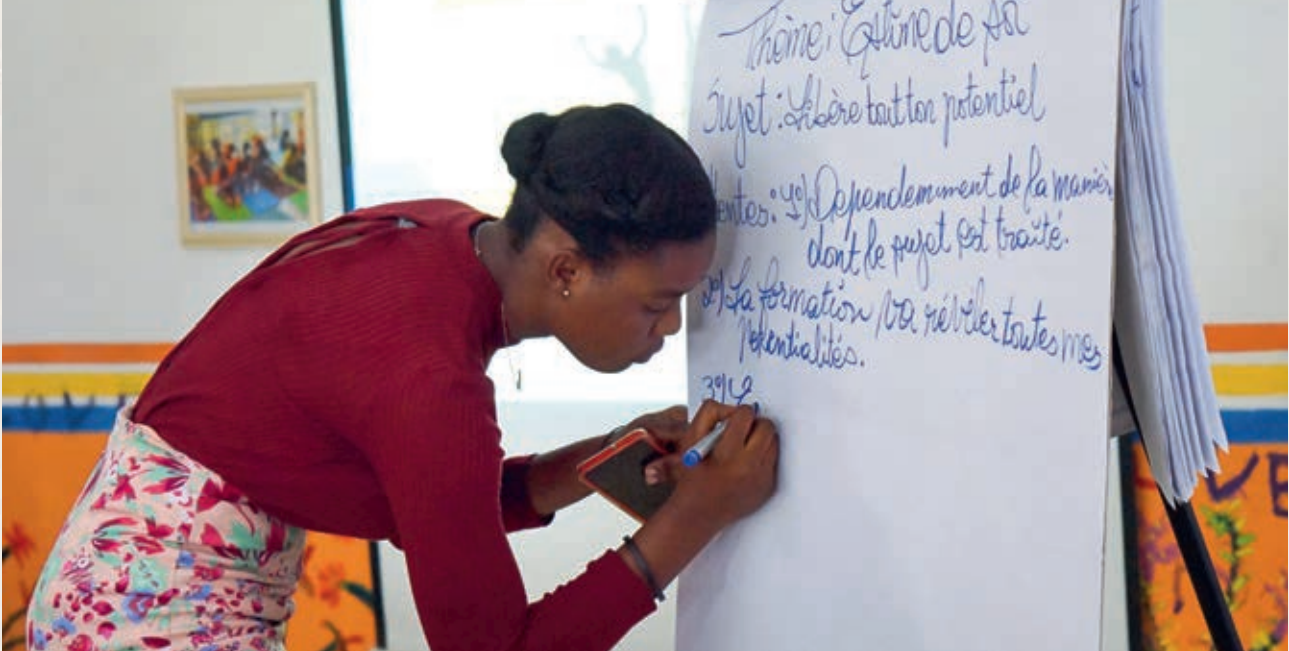 Thème: Estime de soi
Sujet: Libère tout ton potentiel
tentes: 1°) Dépendemment de la manièr
dont le sujet est traité.
2°) La formation va révéler toutes mes
potentialités.
3°) L